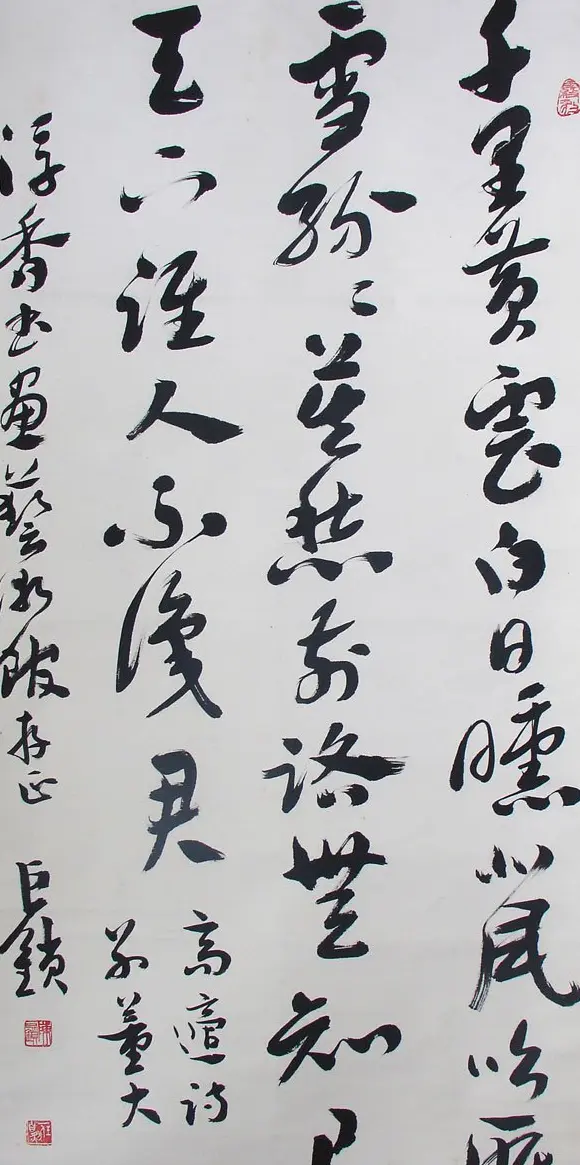 千里黃雲白日曛北風吹雁
雪紛々莫愁前路無知己
天下誰人不識君
高適詩
別董大
淳香書畫藝術館存正 巨鎖